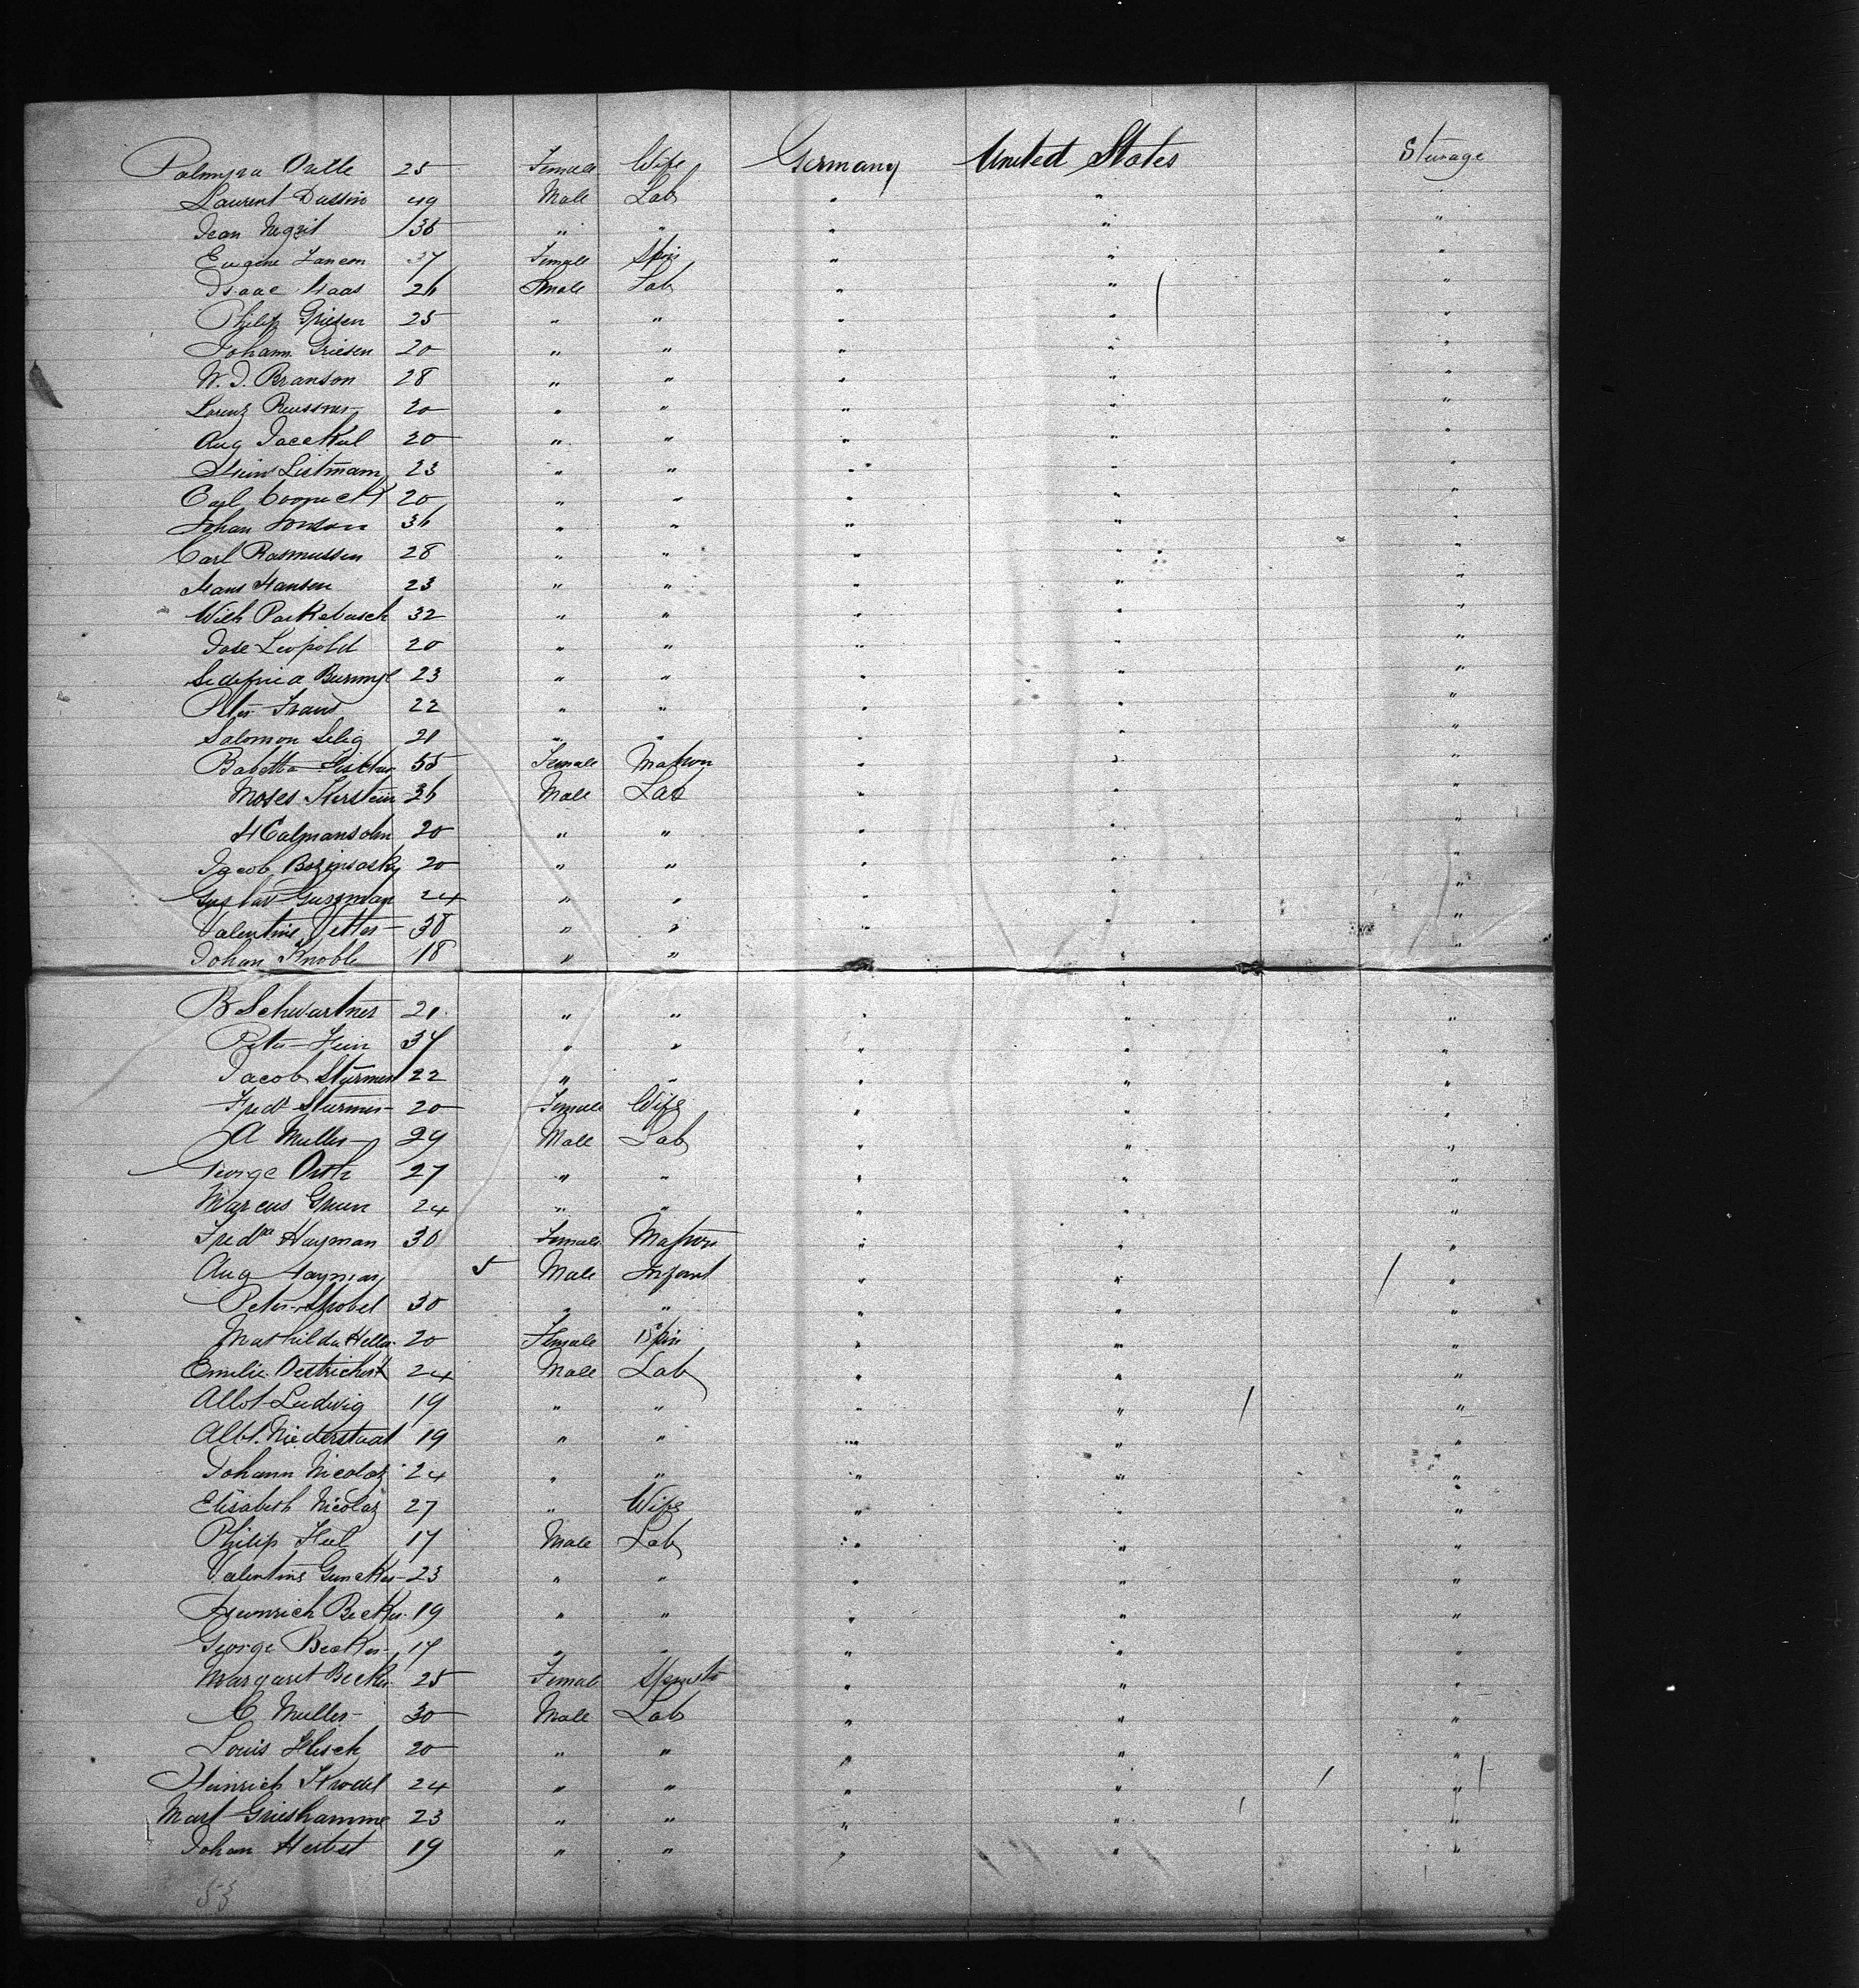 Palmyra Oulle 25 Female Wife Germany United States Sturage
Laurent Dussin 49 Male Lab " " "
Jean Negrit 36 " " " " "
Eugene Lancon 37 Female Spin " " "
Isaac Haas 26 Male Lab " " "
Philip Griesen 25 " " " " "
Johann Griesen 20 " " " " "
W. J. Branson 28 " " " " "
Lorenz Reussner 20 " " " " "
Aug 20 " " " " "
Listmann 23 " " " " "
Carl 20 " " " " "
Johan Jonson 36 " " " " "
Carl Rasmussen 28 " " " " "
Hans Hansen 23 " " " " "
Wilh Packebusch 32 " " " " "
Jose Leopold 20 " " " " "
23 " " " " "
Peter Frans 22 " " " " "
Salomon Selig 21 " " " " "
Babetta Fischer 55 Female Matron " " "
Moses Kerstein 36 Male Lab " " "
H Calmansohn 20 " " " " "
Jacob 20 " " " " "
Gustav Gurzman 24 " " " " "
Valentine Vetter 38 " " " " "
Johan Knoble 18 " " " " "
B Schwartner 21 " " " " "
Peter Hein 34 " " " " "
Jacob Sturmer 22 " " " " "
Fredk Sturmer 20 Female Wife " " "
A Muller 29 Male Lab " " "
George Orth 27 " " " " "
Marcus Grun 24 " " " " "
Fredka Hayman 30 Female Matron " " "
Aug Hayman 5 Male Infant " " "
Peter Strobel 30 " " " " "
Mathilda Heller 20 Female Spin " " "
Emilie 24 Male Lab " " "
Albot Ludwig 19 " " " " "
Albt. Niederstaat 19 " " " " "
Johann Nicolaz 24 " " " " "
Elisabeth Nicolaz 27 " Wife " " "
Philip Heil 17 Male Lab " " "
Valentine Guncker 23 " " " " "
Heinrich Becker 19 " " " " "
George Becker 17 " " " " "
Margaret Becker 25 Female " " "
C Muller 30 Male Lab " " "
Louis Flisch 20 " " " " "
Heinrich Strodel 24 " " " " "
Mart Grieshamme 23 " " " " "
Johan Herbst 19 " " " " "
53